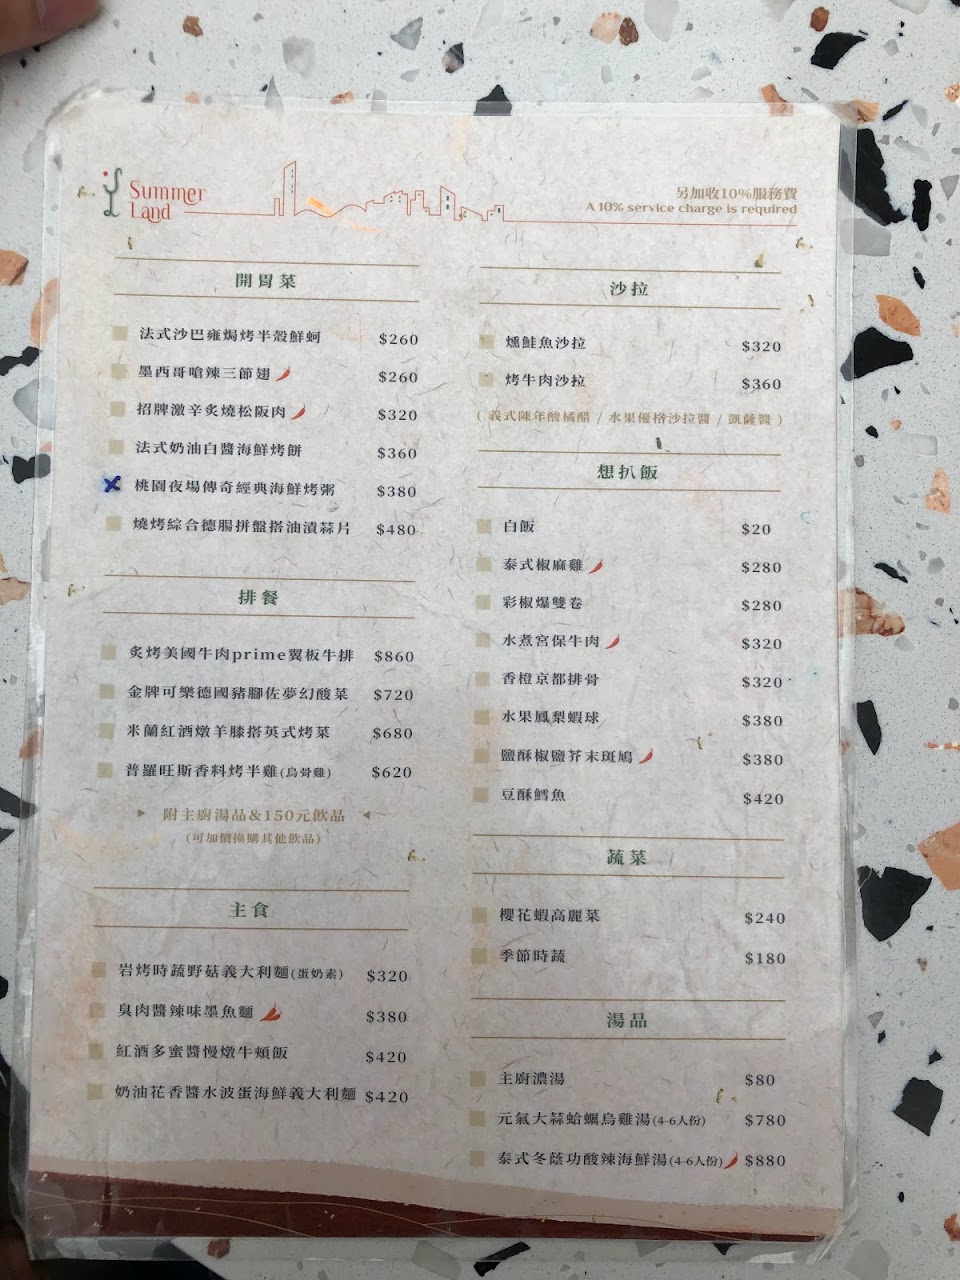 Summer
Land
另加收10%服務費
A 10% service charge is required
開胃菜
法式沙巴雍焗烤半殼鮮蚵 $260
墨西哥嗆辣三節翅 $260
招牌激辛炙燒松阪肉 $320
法式奶油白醬海鮮烤餅 $360
桃園夜場傳奇經典海鮮烤粥 $380
燒烤綜合德腸拼盤搭油漬蒜片 $480
排餐
炙烤美國牛肉prime翼板牛排 $860
金牌可樂德國豬腳佐夢幻酸菜 $720
米蘭紅酒燉羊膝搭英式烤菜 $680
普羅旺斯香料烤半雞(烏骨雞) $620
附主廚湯品&150元飲品
(可加價換購其他飲品)
主食
岩烤時蔬野菇義大利麵(蛋奶素) $320
臭肉醬辣味墨魚麵 $380
紅酒多蜜醬慢燉牛頰飯 $420
奶油花香醬水波蛋海鮮義大利麵 $420
沙拉
燻鮭魚沙拉 $320
烤牛肉沙拉 $360
( 義式陳年酸橘醋 / 水果優格沙拉醬 / 凱薩醬 )
想扒飯
白飯 $20
泰式椒麻雞 $280
彩椒爆雙卷 $280
水煮宮保牛肉 $320
香橙京都排骨 $320
水果鳳梨蝦球 $380
鹽酥椒鹽芥末斑鳩 $380
豆酥鱈魚 $420
蔬菜
櫻花蝦高麗菜 $240
季節時蔬 $180
湯品
主廚濃湯 $80
元氣大蒜蛤蠣烏雞湯(4-6人份) $780
泰式冬蔭功酸辣海鮮湯(4-6人份) $880